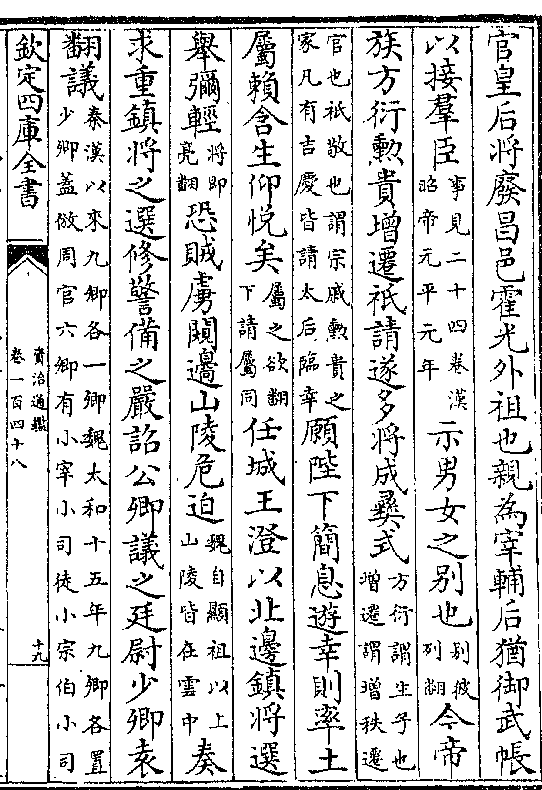 官皇后將廢昌邑霍光外祖也親為宰輔后猶御武帳
以接羣臣事見二十四卷漢昭帝元平元年示男女之別也别彼列翻今帝
族方衍勲貴增遷祗請遂多將成彞式方衍謂生子也增遷謂增秩遷
官也祗敬也謂宗戚勲貴之家凡有吉慶皆請太后臨幸願陛下簡息遊幸則率土
屬賴含生仰悅矣屬之欲翻下請屬同任城王澄以北邊鎮將選
舉彌輕將即亮翻恐賊虜闚邊山陵危迫魏自顯祖以上山陵皆在雲中奏
求重鎮將之選修警備之嚴詔公卿議之廷尉少卿袁
翻議秦漢以來九卿各一卿魏太和十五年九卿各置少卿蓋倣周官六卿有小宰小司徒小宗伯小司
欽定四庫全書
資治通鑑
卷一百四十八
十九